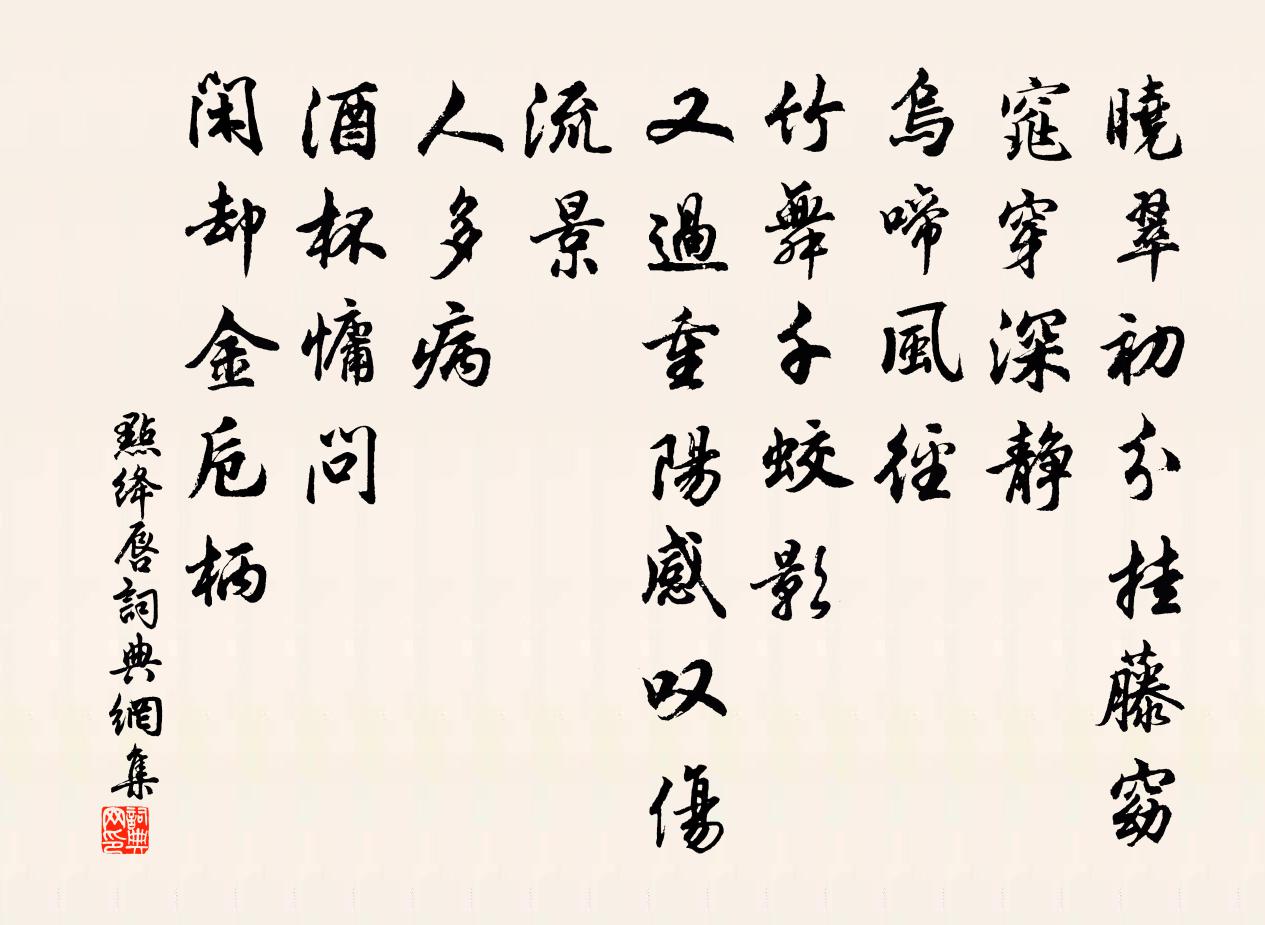 曉翠初分挂藤窈
窕穿深静
烏啼風徑
竹舞千蛟影
又過重陽感叹傷
流景
人多病
酒杯慵問
閑却金卮柄
點絳唇詞典網集
詞典网印